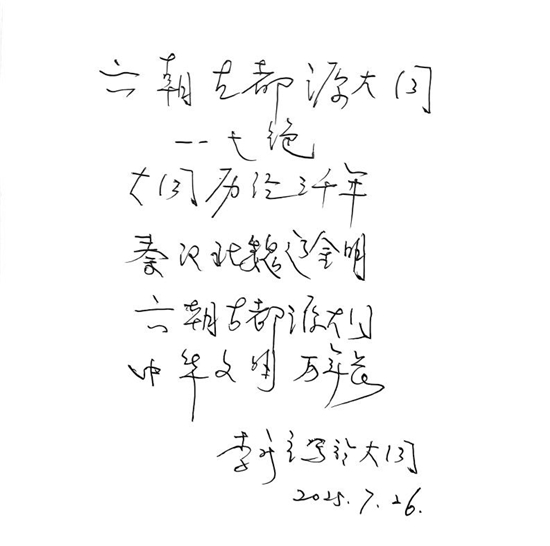 六朝古都源大同
--七绝
大同历经三千年
秦汉北魏辽金明
六朝古都源大同
中华文明万年
李 写于大同
2025.7.26.